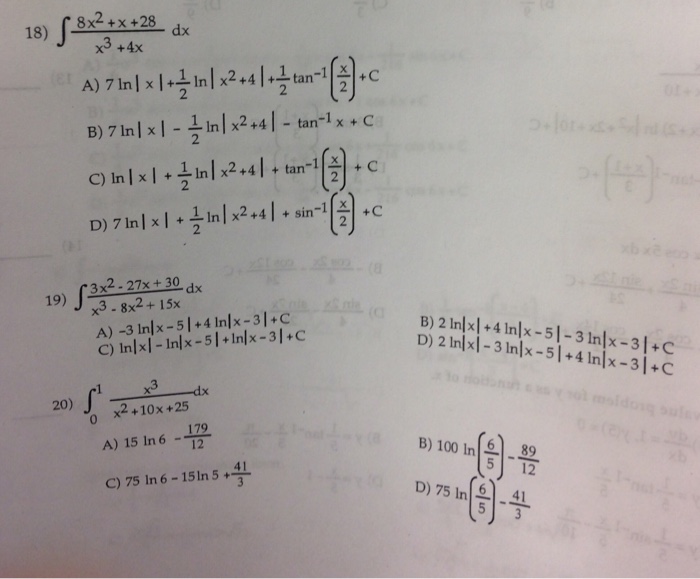 18) ∫ 8x² + x + 28 / x³ + 4x dx
A) 7 ln| x | + 1/2 ln| x² + 4 | + 1/2 tan⁻¹(x/2) + C
B) 7 ln| x | - 1/2 ln| x² + 4 | - tan⁻¹ x + C
C) ln| x | + 1/2 ln| x² + 4 | + tan⁻¹(x/2) + C
D) 7 ln| x | + 1/2 ln| x² + 4 | + sin⁻¹(x/2) + C
19) ∫ 3x² - 27x + 30 / x³ - 8x² + 15x dx
A) -3 ln|x - 5| + 4 ln|x - 3| + C
B) 2 ln|x| + 4 ln|x - 5| - 3 ln|x - 3| + C
C) ln|x| - ln|x - 5| + ln|x - 3| + C
D) 2 ln|x| - 3 ln|x - 5| + 4 ln|x - 3| + C
20) ∫₀¹ x³ / x² + 10x + 25 dx
A) 15 ln 6 - 179/12
B) 100 ln(6/5) - 89/12
C) 75 ln 6 - 15 ln 5 + 41/3
D) 75 ln(6/5) - 41/3